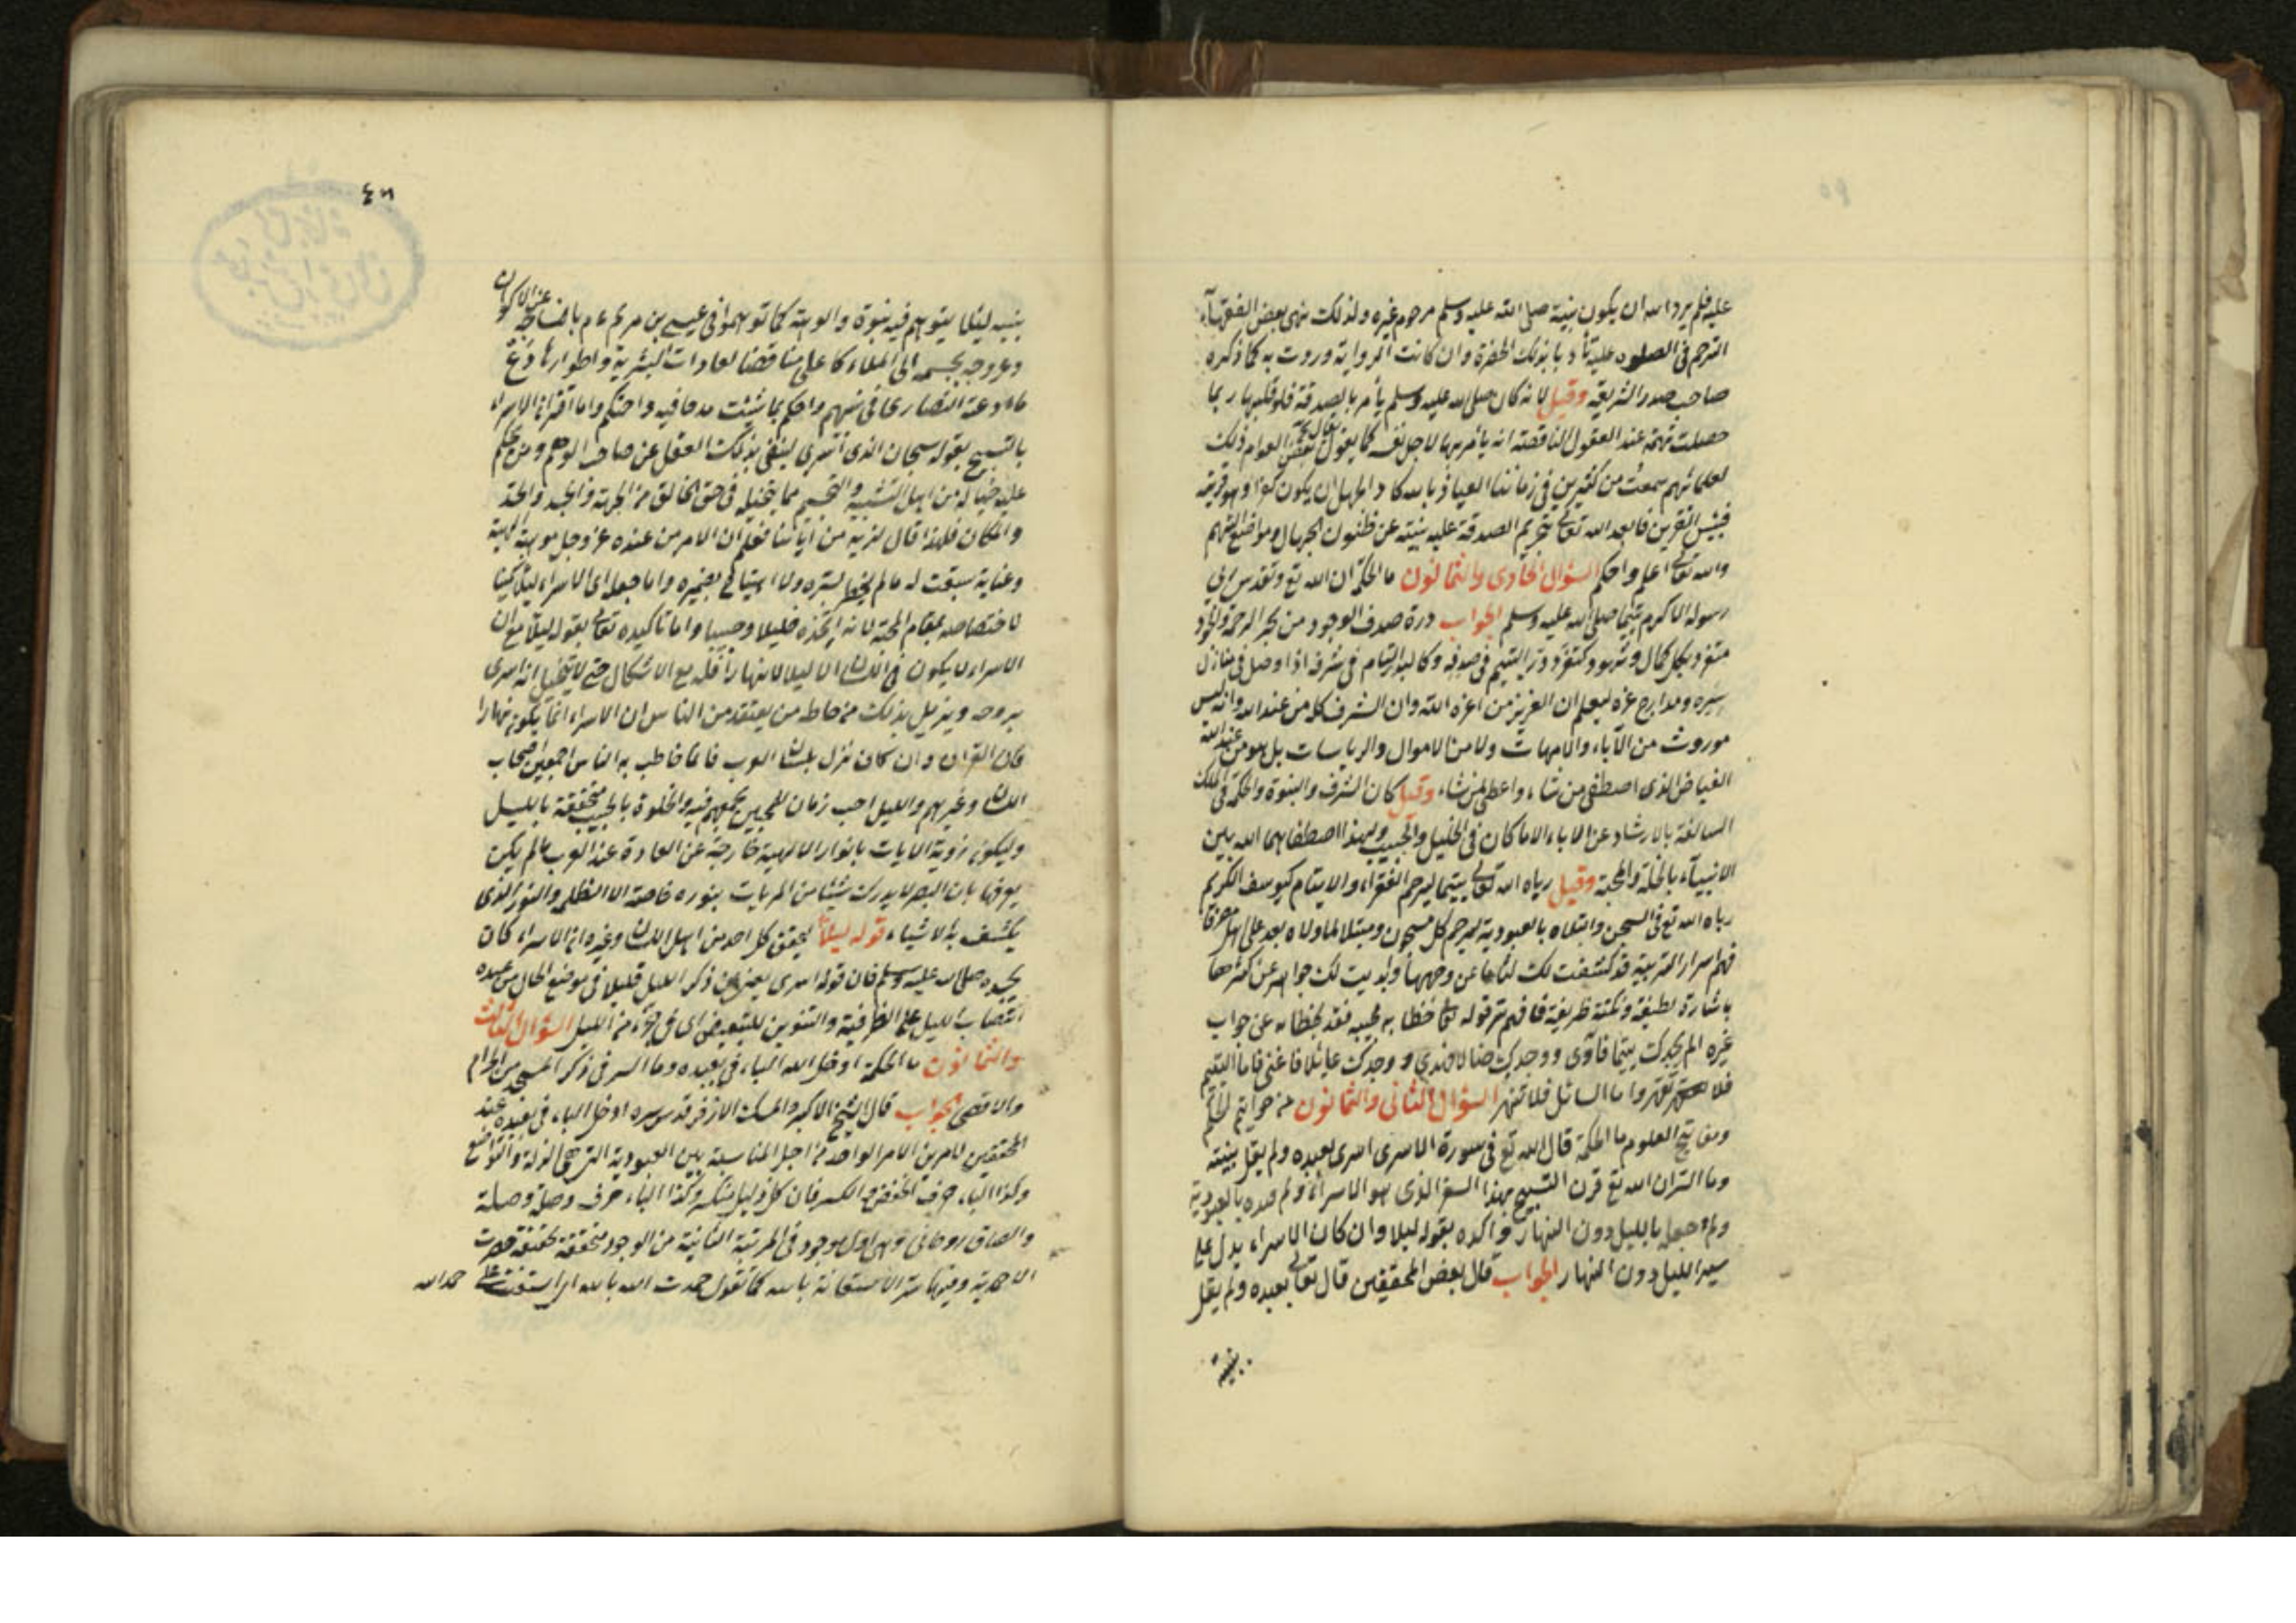 عليه فلم يرد الله ان يكون بنيته صلى الله عليه وسلم مرحوم غيره ولذلك نهى بعض الفقهاء
الترحم فى الصلوة عليه تأدبا بذلك الحضرة وان كانت الرواية وردت به كما ذكره
صاحب صدر الشريعة وقيل لانه كان صلى الله عليه وسلم يأمر بالصدقة فلو قلبها ربما
حصلت تهمة عند العقول الناقصة انه يأمر بها لاجل نفسه كما يقول بعض العوام ذلك
لعلمائهم سمعت من كثيرين فى زماننا العياذ بالله كاد الجهل ان يكون كفرا وهو قرينه
فبئس القرين فابعد الله تعالى بتحريم الصدقة عليه بنيته عن ظنون الجهال ومواضع التهم
والله تعالى اعلم واحكم السؤال الحادى والثمانون ما الحكمة ان الله تع وتقدس ربى
رسوله الاكرم يتيما صلى الله عليه وسلم الجواب درة صدف الوجود من بحر الرحمة والجود
متفرد بكل كمال وشهود كتفرد در اليتيم فى صدفه وكالبدر التمام فى شرفه اذا وصل فى منازل
سيره ومدارج عزه ليعلم ان العزيز من اعزه الله وان الشرف كله من عند الله وانه ليس
موروث من الآباء والامهات ولا من الاموال والرياسات بل هو من عند الله
الفياض الذى اصطفى من شاء واعطى لمن شاء وقيل كان الشرف والنبوة والحكمة فى الملك
السالفة بالارشاد عن الاباء الا ما كان فى الخليل والحبيب ولهذا اصطفاهما الله بين
الانبياء بالخلة والمحبة وقيل رباه الله تعالى يتيما ليرحم الفقراء والايتام كيوسف الكريم
رباه الله تع فى السجن وابتلاه بالعبودية ليرحم كل مسجون ومبتلا لما ولاه بعد على اهل مصر
فهم اسرار التربية قد كشفت لك لثامها عن وجهها وابديت لك جواهر عن كنزها
باشارة لطيفة ونكتة ظريفة فافهم سر قوله تع خطابه لحبيبه فقد يخطابه عن جواب
غيره الم يجدك يتيما فآوى ووجدك ضالا فهدى ووجدك عائلا فاغنى فاما اليتيم
فلا تقهر واما السائل فلا تنهر السؤال الثانى والثمانون من خواتيم الحكم
ومفاتيح العلوم ما الحكمة قال الله تع فى سورة الاسرى اسرى بعبده ولم يقل بنبيه
وما السر ان الله تع قرن التسبيح بهذا السفر الذى هو الاسراء ولم مده بالعبودية
ولم جعل بالليل دون النهار واكده بقوله ليلا وان كان الاسراء يدل على
سير الليل دون النهار الجواب قال بعض المحققين قال تعالى بعبده ولم يقل
بنبيه
٤٦
بنبيه لئلا يتوهم فيه نبوة والوهية كما توهموا فى عيسى بن مريم عم بانسلاخه عن الاكوان
وعروجه بجسمه الى الملاء الاعلى مناقضا لعادات البشرية واطوارها دع
ما ادعته النصارى فى نبيهم واحكم بما شئت مدحا فيه واحتكم واما اقتران الاسراء
بالتسبيح بقوله سبحان الذى اسرى لينفى بذلك العقل عن صاحب الوهم ومن يحكم
عليه خياله من اهل التشبيه والتجسيم مما يتخيله فى حق الخالق من الجهة والجسد والحد
والمكان فلهذا قال لنريه من آياتنا فعلم ان الامر من عنده عز وجل موهبة الهية
وعناية سبقت له مالم يخطر بسره ولا اختلج بضميره واما جعل اى الاسراء ليلا تمكينا
لاختصاصه بمقام المحبة لانه اتخذه خليلا وحبيبا واما تاكيده تعالى بقوله ليلا مع ان
الاسراء لا يكون فى اللسان الا ليلا لا نهارا فله مع الاشكال حتى لا يتخيل انه اسرى
بروحه ويزيل بذلك من خاطر من يعتقد من الناس ان الاسراء انما يكون نهارا
فان القرآن وان كان نزل بلسان العرب فانما خاطب به الناس اجمعين اصحاب
اللسان وغيرهم والليل احب زمان للمحبين لجمعهم فيه والخلوة بالحبيب متحققة بالليل
وليكون رؤية الايات بانوار الالهية خارجة عن العادة عند العرب مالم يكن
يعرفها بان البصر لا يدرك شيئا من المريات بنوره خاصة الا الظلم والنور الذى
يكشف به الاشياء قوله ليلا لتحقق كل احد من اهل اللسان وغيره ان الاسراء كان
بجسده صلى الله عليه وسلم فان قوله اسرى يغنى عن ذكر الليل قليلا فى موضع الحال من عبده
انتصاب الليل على الظرفية والتنوين للتبعيض اى فى جزء من الليل السؤال الثالث
والثمانون ما الحكمة ادخل الله الباء فى بعبده وما السر فى ذكر المسجد من الحرام
والاقصى الجواب قال الشيخ الاكبر والمسك الازفر قدس سره ادخل الباء فى بعبده عند
المحققين لامرين الامر الواحد من اجل المناسبة بين العبودية التى هى الذلة والتواضع
وكذا الباء حرف الخفض والكسر فان كل ذليل منكسر وكذا الباء حرف وصل وصلة
والصاق روحانى وهى اول موجود فى المرتبة الثانية من الوجود متحققة بحقيقة حضرت
الاحدية وفيها سر الاستعانة بالله كما تقول حمدت الله بالله اى استعنت على حمد الله